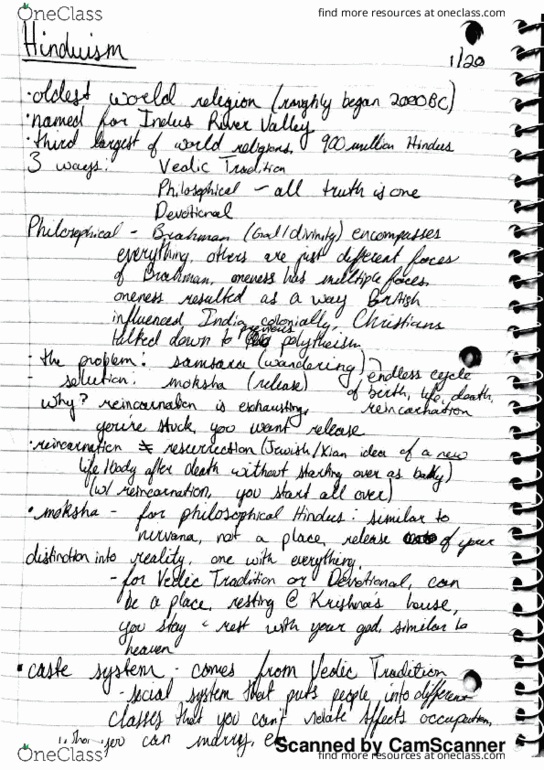 OneClass
find more resources at oneclass.com
Hinduism
1/20
·oldest world religion (roughly began 2000BC)
·named for Indus River Valley
·third largest of world religions. 900 million Hindus
3 ways: Vedic Tradition
Philosophical - all truth is one
Devotional
Philosophical - Brahman (God/divinity) encompasses
everything, others are just different faces
of Brahman, oneness has multiple faces.
oneness resulted as a way British
influenced India colonially, Christians
talked down to previous polytheism
- the problem: samsara (wandering) endless cycle
- solution: moksha (release) of birth, life, death,
- why? reincarnation is exhausting, reincarnation
you're stuck, you want release
·reincarnation ≠ resurrection (Jewish/Xian idea of a new
life/body after death without starting over as baby)
(w/ reincarnation, you start all over)
·moksha - for philosophical Hindus: similar to
nirvana, not a place, release of your
distinction into reality, one with everything.
- for Vedic Tradition or Devotional, can
be a place, resting @ Krishna's house,
you stay & rest with your god, similar to
heaven
·caste system - comes from Vedic Tradition
- social system that puts people into different
classes that you can't relate affects occupation,
you can marry,
Scanned by CamScanner
OneClass
find more resources at oneclass.com